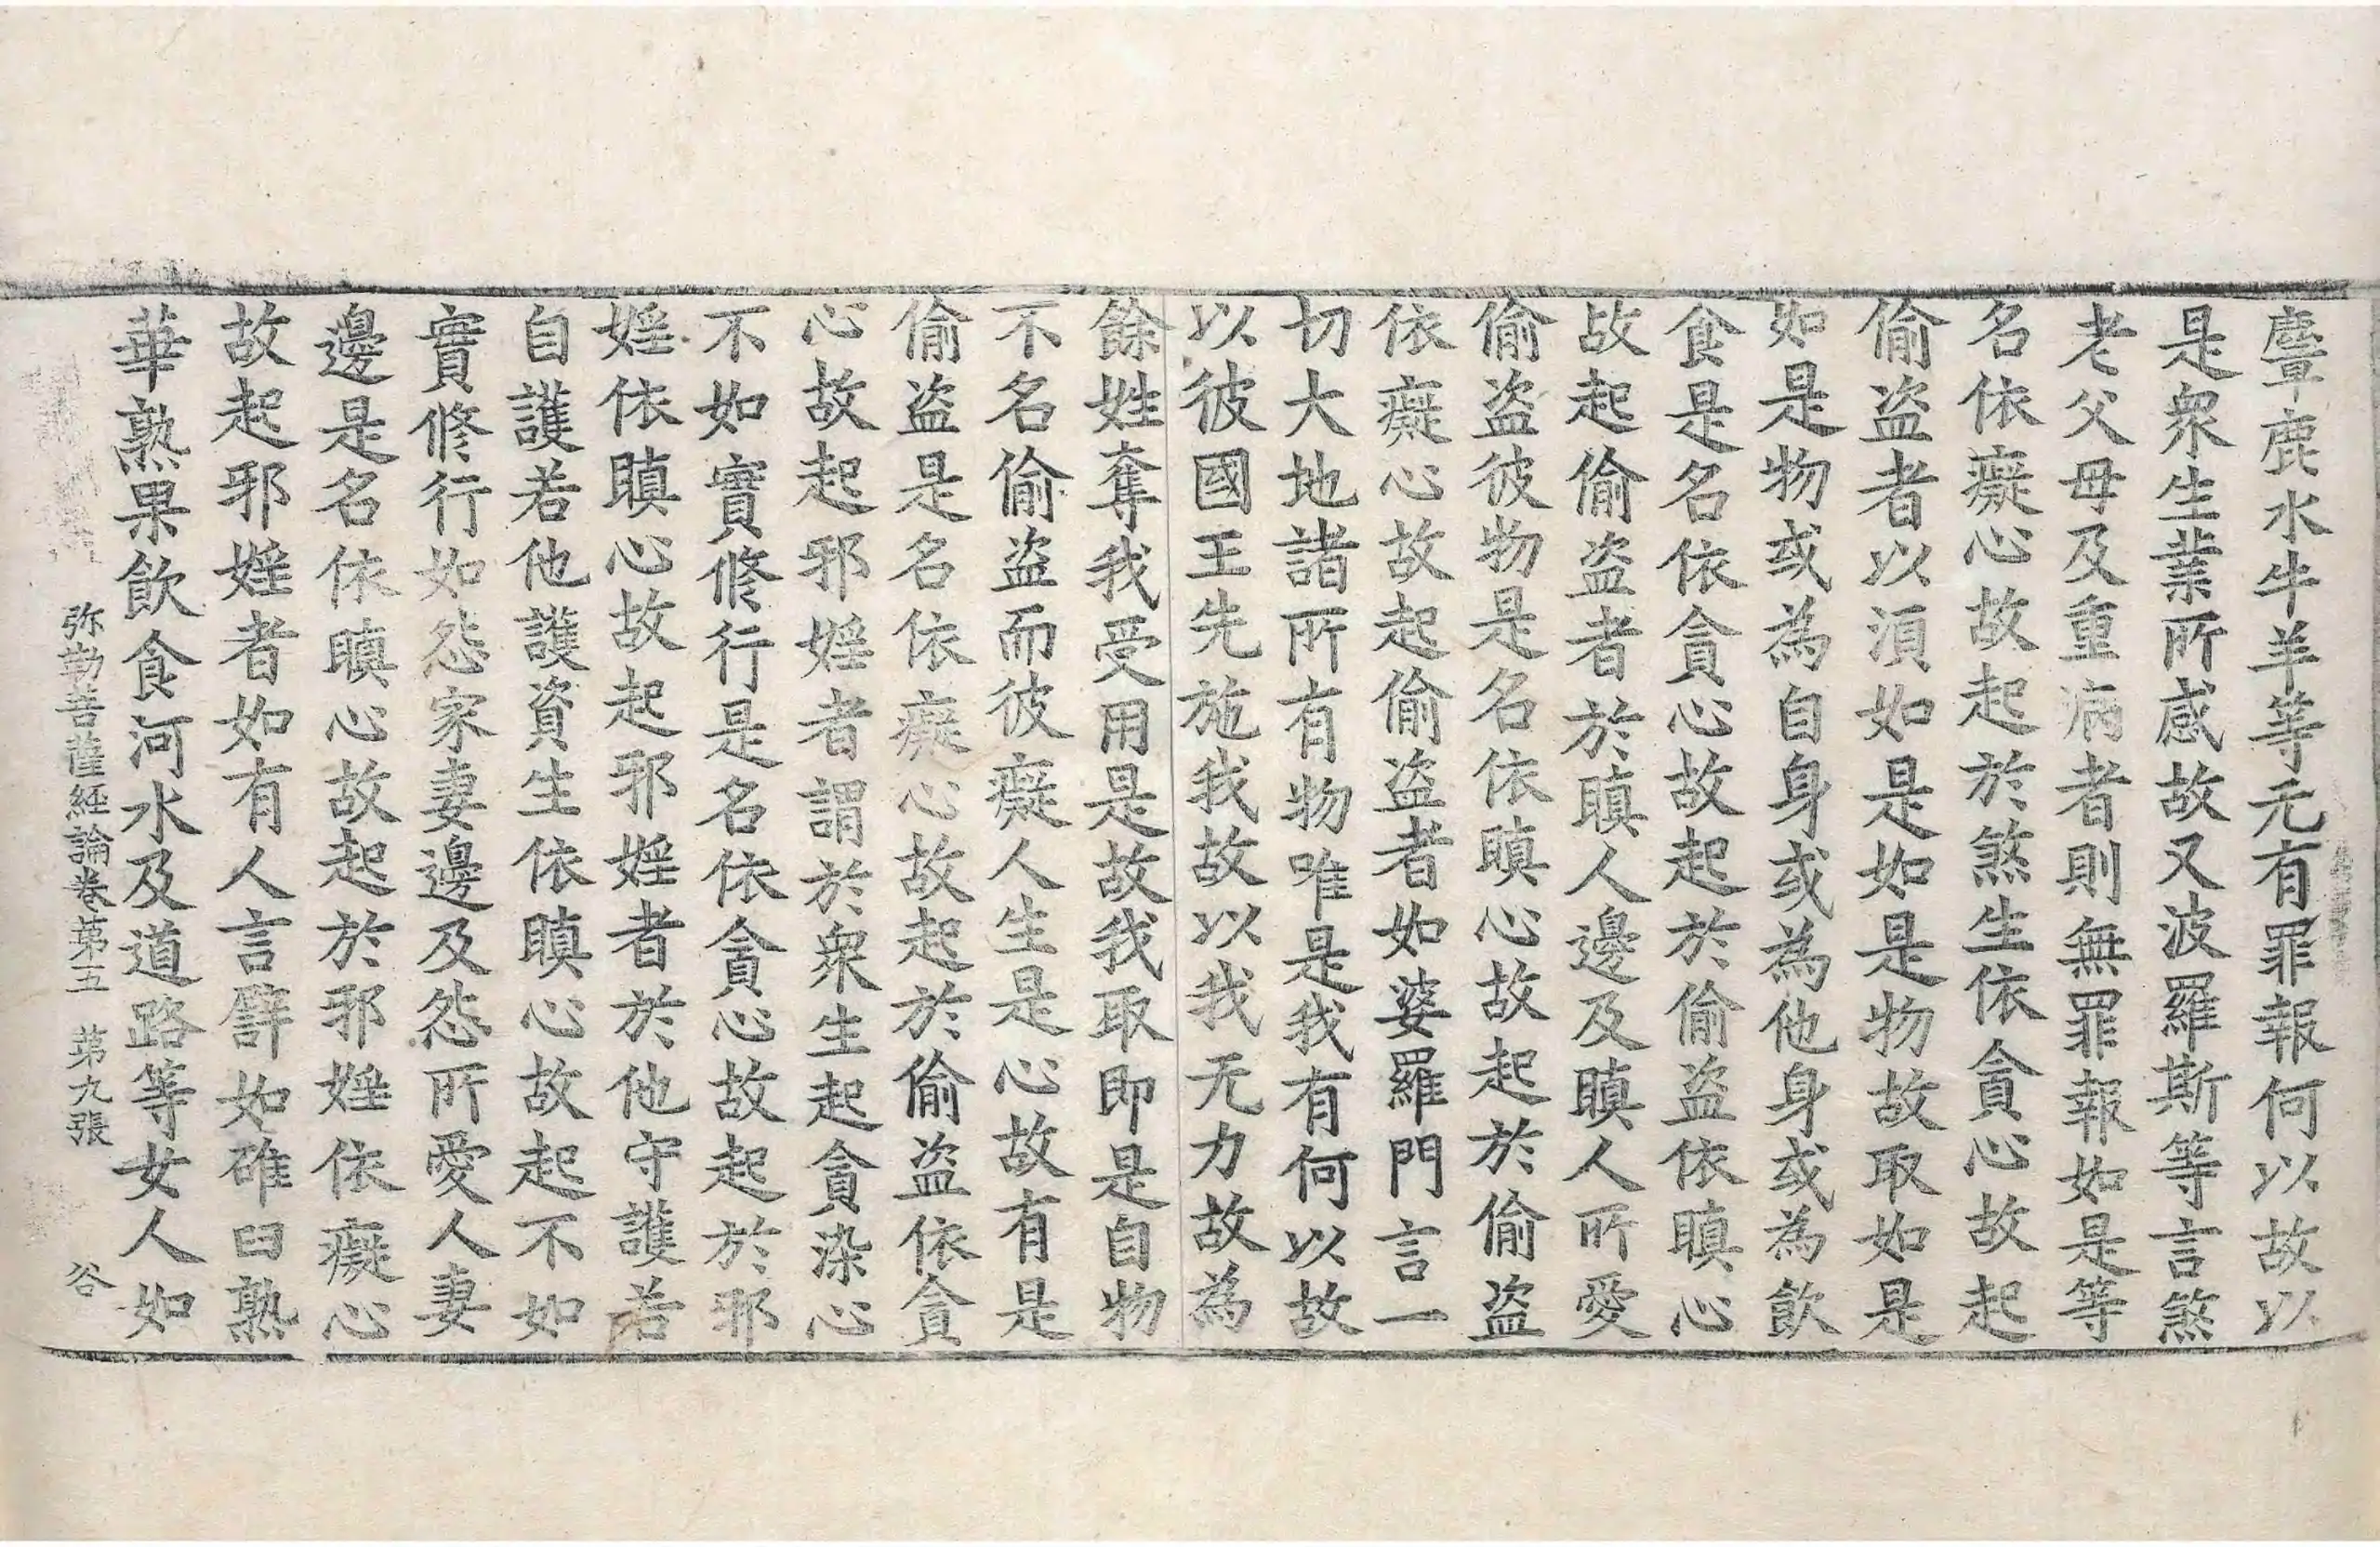 麞鹿水牛羊等无有罪報何以故以
是衆生業所感故又波羅斯等言煞
老父母及重病者則無罪報如是等
名依癡心故起於煞生依貪心故起
偷盗者以湏如是如是物故取如是
如是物或為自身或為他身或為飲
食是名依貪心故起於偷盗依瞋心
故起偷盗者於瞋人邊及瞋人所愛
偷盗彼物是名依瞋心故起於偷盗
依癡心故起偷盗者如婆羅門言一
切大地諸所有物唯是我有何以故
以彼國王先施我故以我无力故為
餘姓奪我受用是故我取即是自物
不名偷盗而彼癡人生是心故有是
偷盗是名依癡心故起於偷盗依貪
心故起邪婬者謂於衆生起貪染心
不如實修行是名依貪心故起於邪
婬依瞋心故起邪婬者於他守護若
自護若他護資生依瞋心故起不如
實修行如怨家妻邊及怨所愛人妻
邊是名依瞋心故起於邪婬依癡心
故起邪婬者如有人言譬如碓臼熟
華熟果飲食河水及道路等女人如
弥勒菩薩経論卷第五 第九張 谷